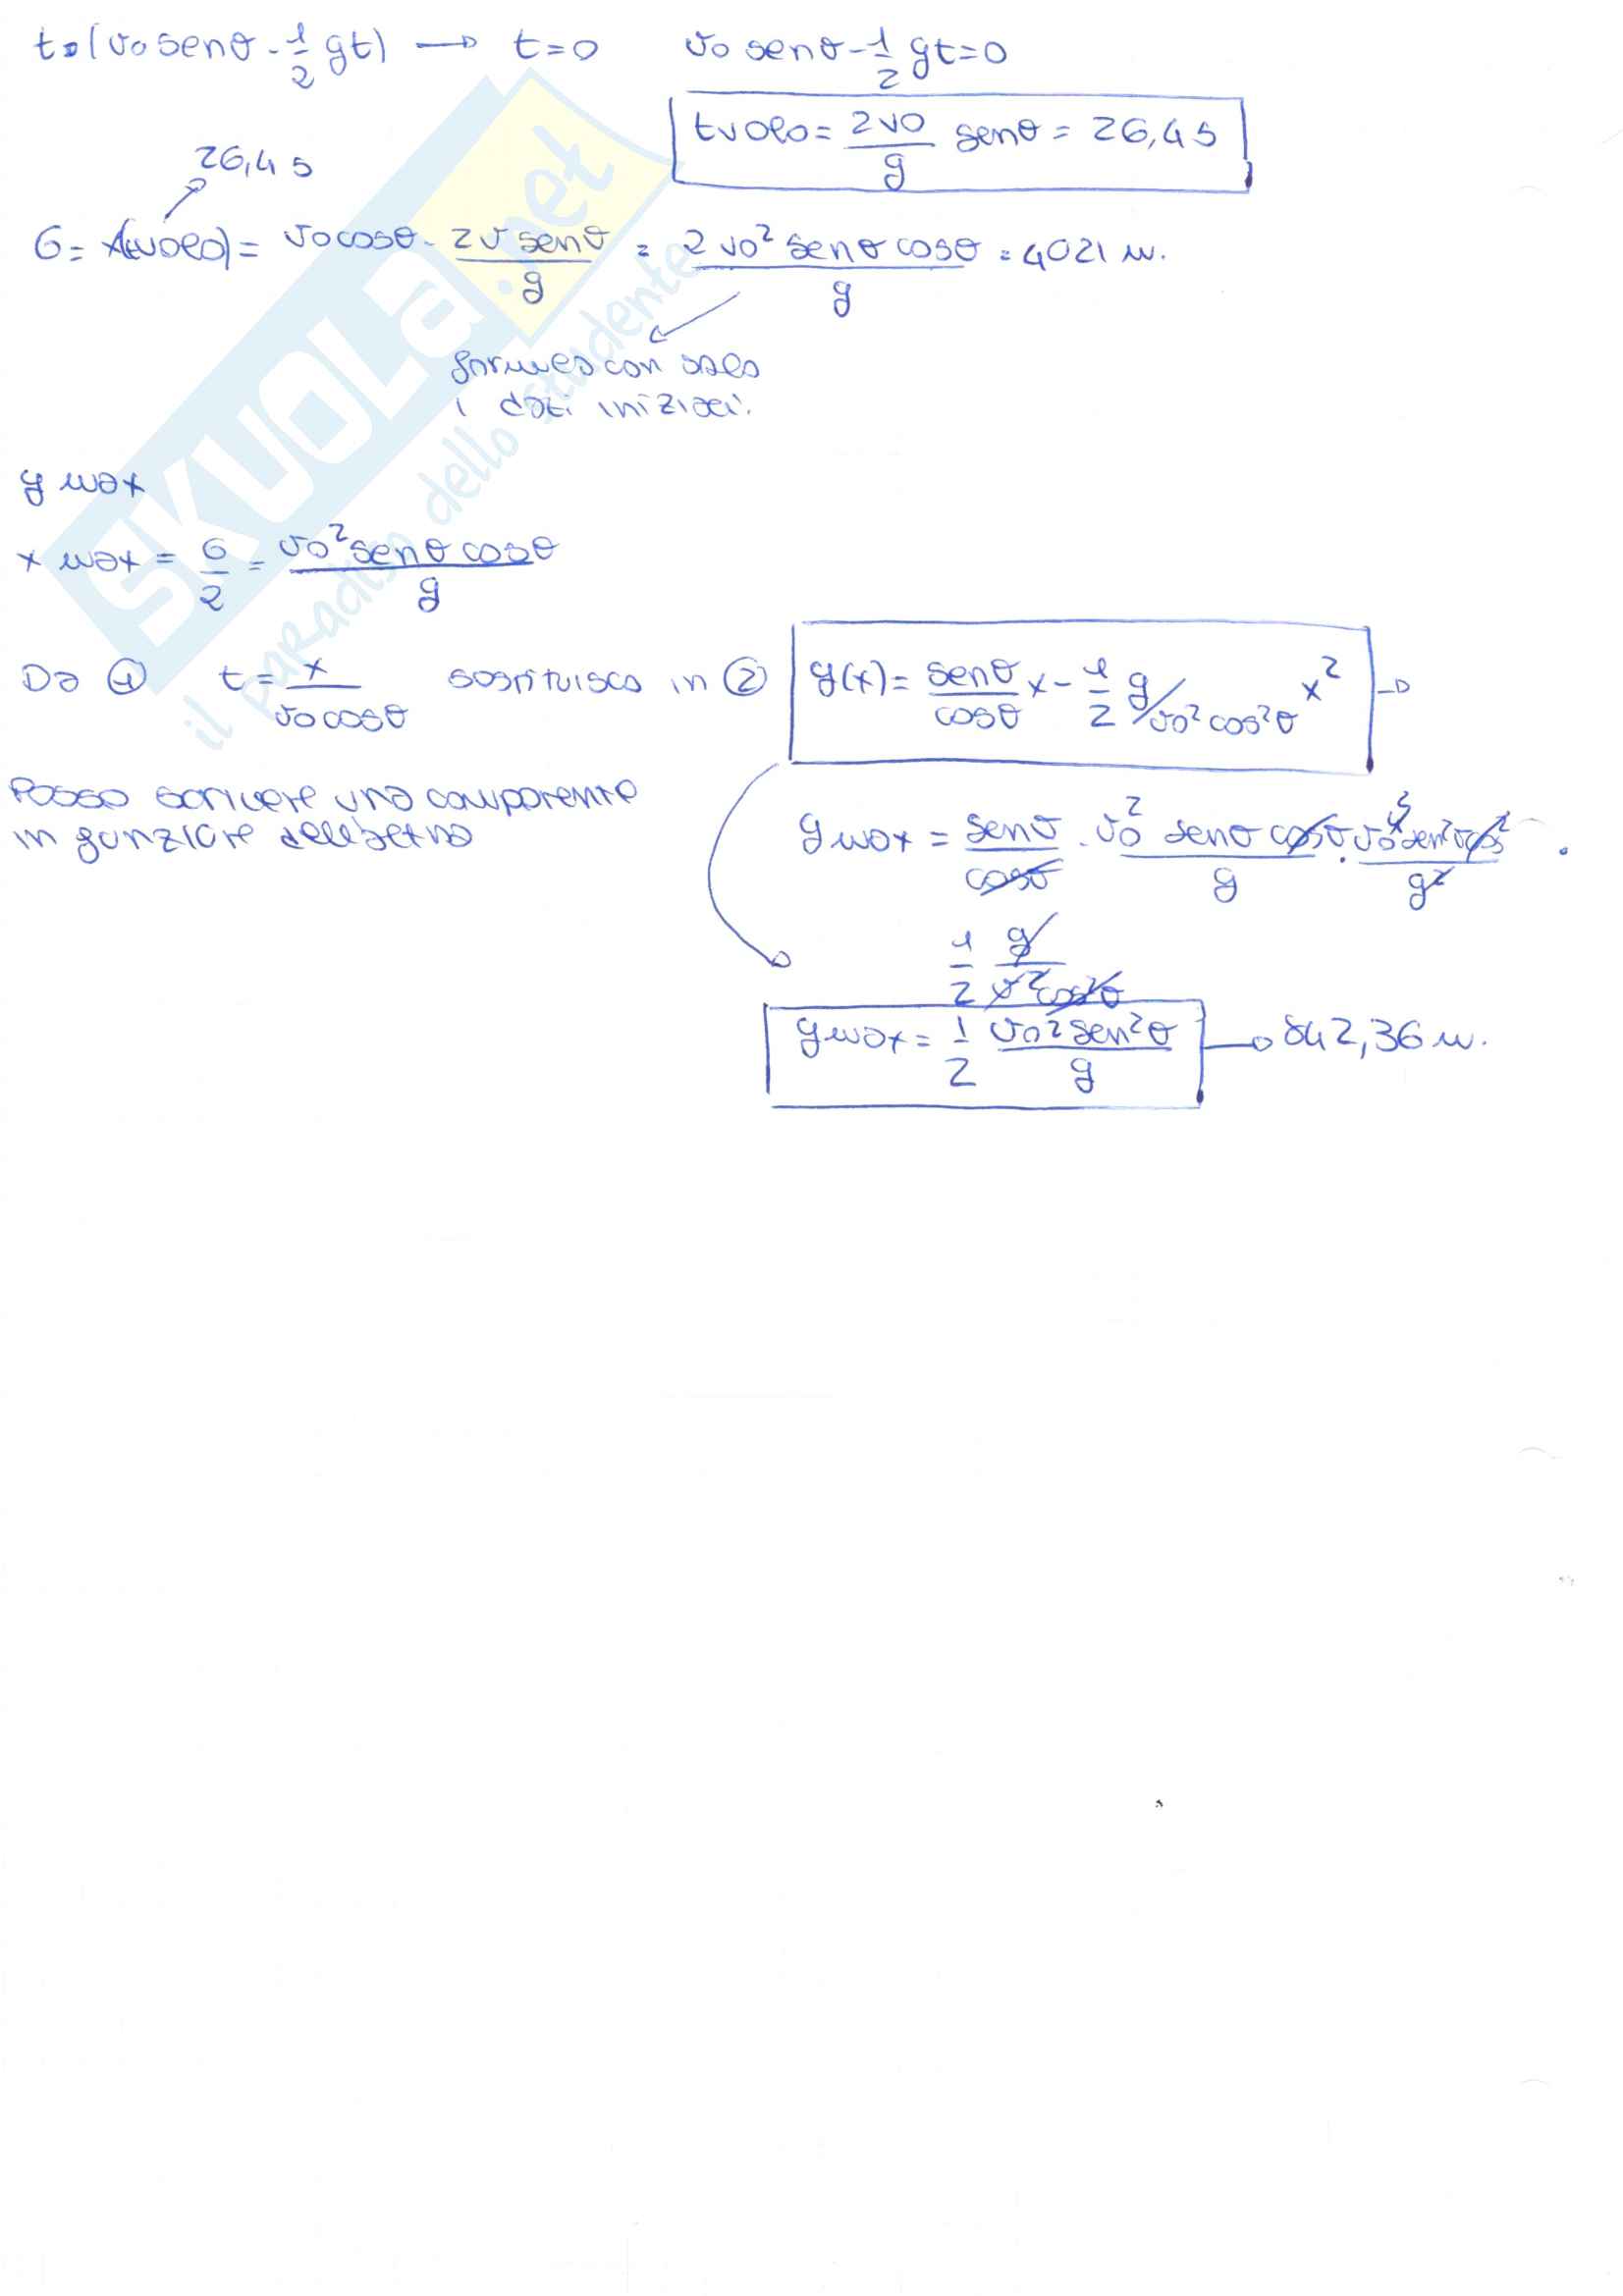 t·(v0 senθ - 1/2 gt) → t=0 v0 senθ - 1/2 gt=0
tvolo = 2v0/g senθ = 26,4 s
26,4 s
G = x(tvolo) = v0 cosθ · 2v senθ/g = 2v0² senθ cosθ/g = 4021 m.
formula con solo
i dati iniziali.
y max
x max = G/2 = v0² senθ cosθ/g
Da ① t = x/v0 cosθ sostituisco in ② y(x) = senθ/cosθ x - 1/2 g/v0² cos²θ x² →
Posso scrivere una componente
in funzione dell'altra
y max = senθ/cosθ · v0² senθ cosθ/g · v0⁴ sen²θ cos²/g² ·
1/2 g/v²cos²θ
y max = 1/2 v0² sen²θ/g → 842,36 m.
SKUOLA.net
il paradiso dello studente